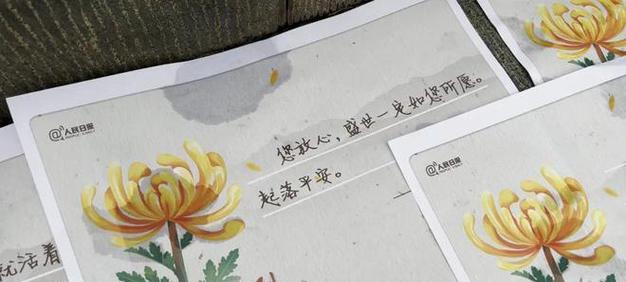 @人民日报
PEOPLE'S DAILY
您放心，盛世一定如您所愿。
起落平安。
@人民日报
就活着